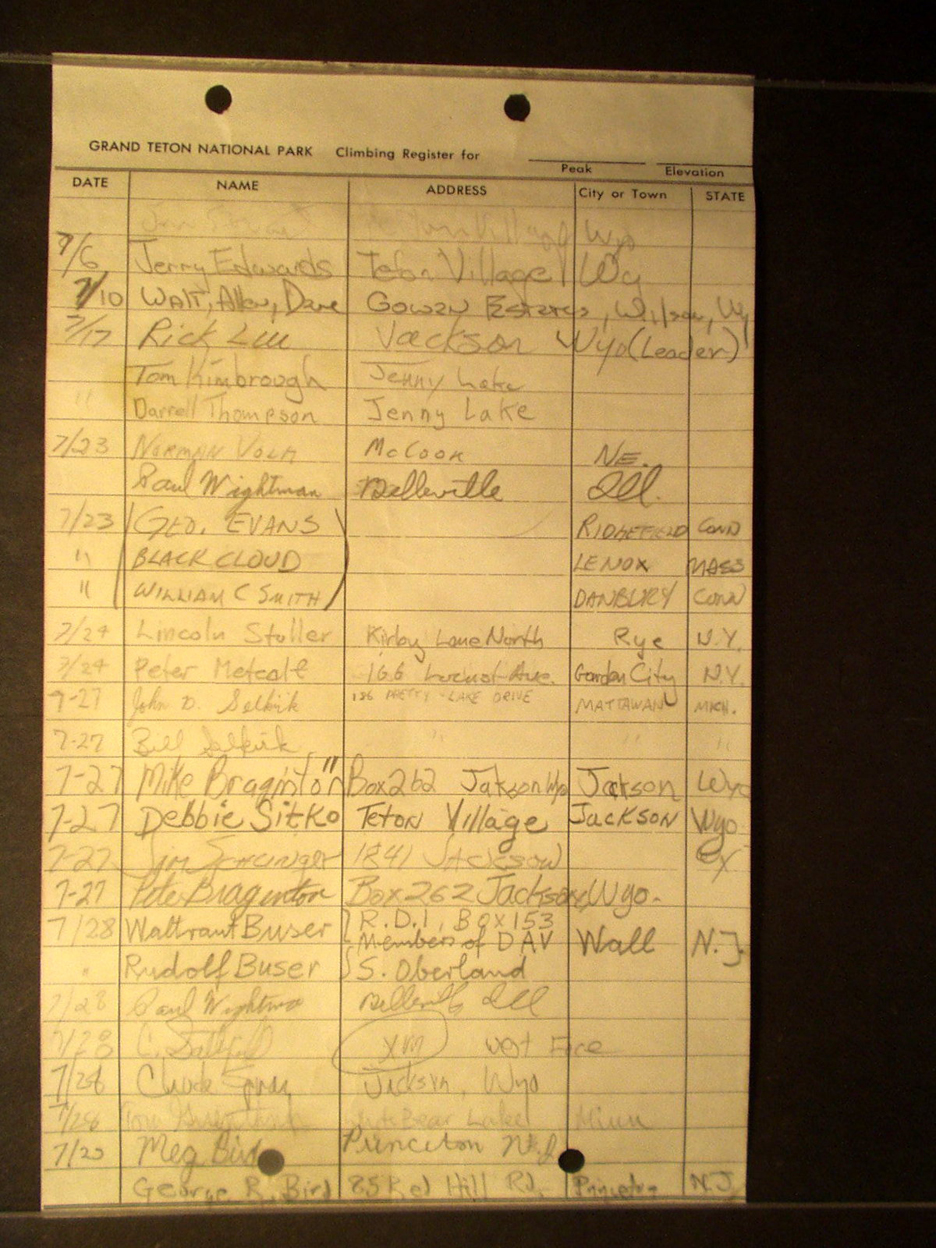 GRAND TETON NATIONAL PARK Climbing Register for
Peak Elevation
DATE NAME ADDRESS City or Town STATE
Wyo
7/6 Jerry Edwards Teton Village Wy
7/10 Walt, Allen, Dave Gowen Estates, Wilson, Wy
7/17 Rick Liu Jackson Wyo (Leader)
Tom Kimbrough Jenny Lake
" Darrell Thompson Jenny Lake
7/23 NORMAN VOLM McCook NE.
Paul Wightman Belleville Ill.
7/23 GEO. EVANS RIDGEFIELD CONN
" BLACK CLOUD LENOX MASS
" WILLIAM C SMITH DANBURY CONN
7/24 Lincoln Stoller Kirby Lane North Rye N.Y.
7/24 Peter Metcalf 166 Locust Ave. Garden City N.Y.
7-27 John D. Selkirk 186 PRETTY LAKE DRIVE MATTAWAN MICH.
7-27 Bill Selkirk " " "
7-27 Mike Braginton Box 262 Jackson Wyo Jackson Wyo
7-27 Debbie Sitko Teton Village Jackson Wyo
7-27 Jim 1841 Jackson
7-27 Pete Braginton Box 262 Jackson Wyo.
7/28 Waltraut Buser R.D.1, Box 153
Members of DAV Wall N.J.
" Rudolf Buser S. Oberland
7/28 Paul Wightman Belleville Ill
7/28 C.
7/28 Jackson, Wyo
7/28 Bear Lake Minn
Meg Bird Princeton N.J.
George R. Bird 85 Red Hill Rd. Princeton N.J.